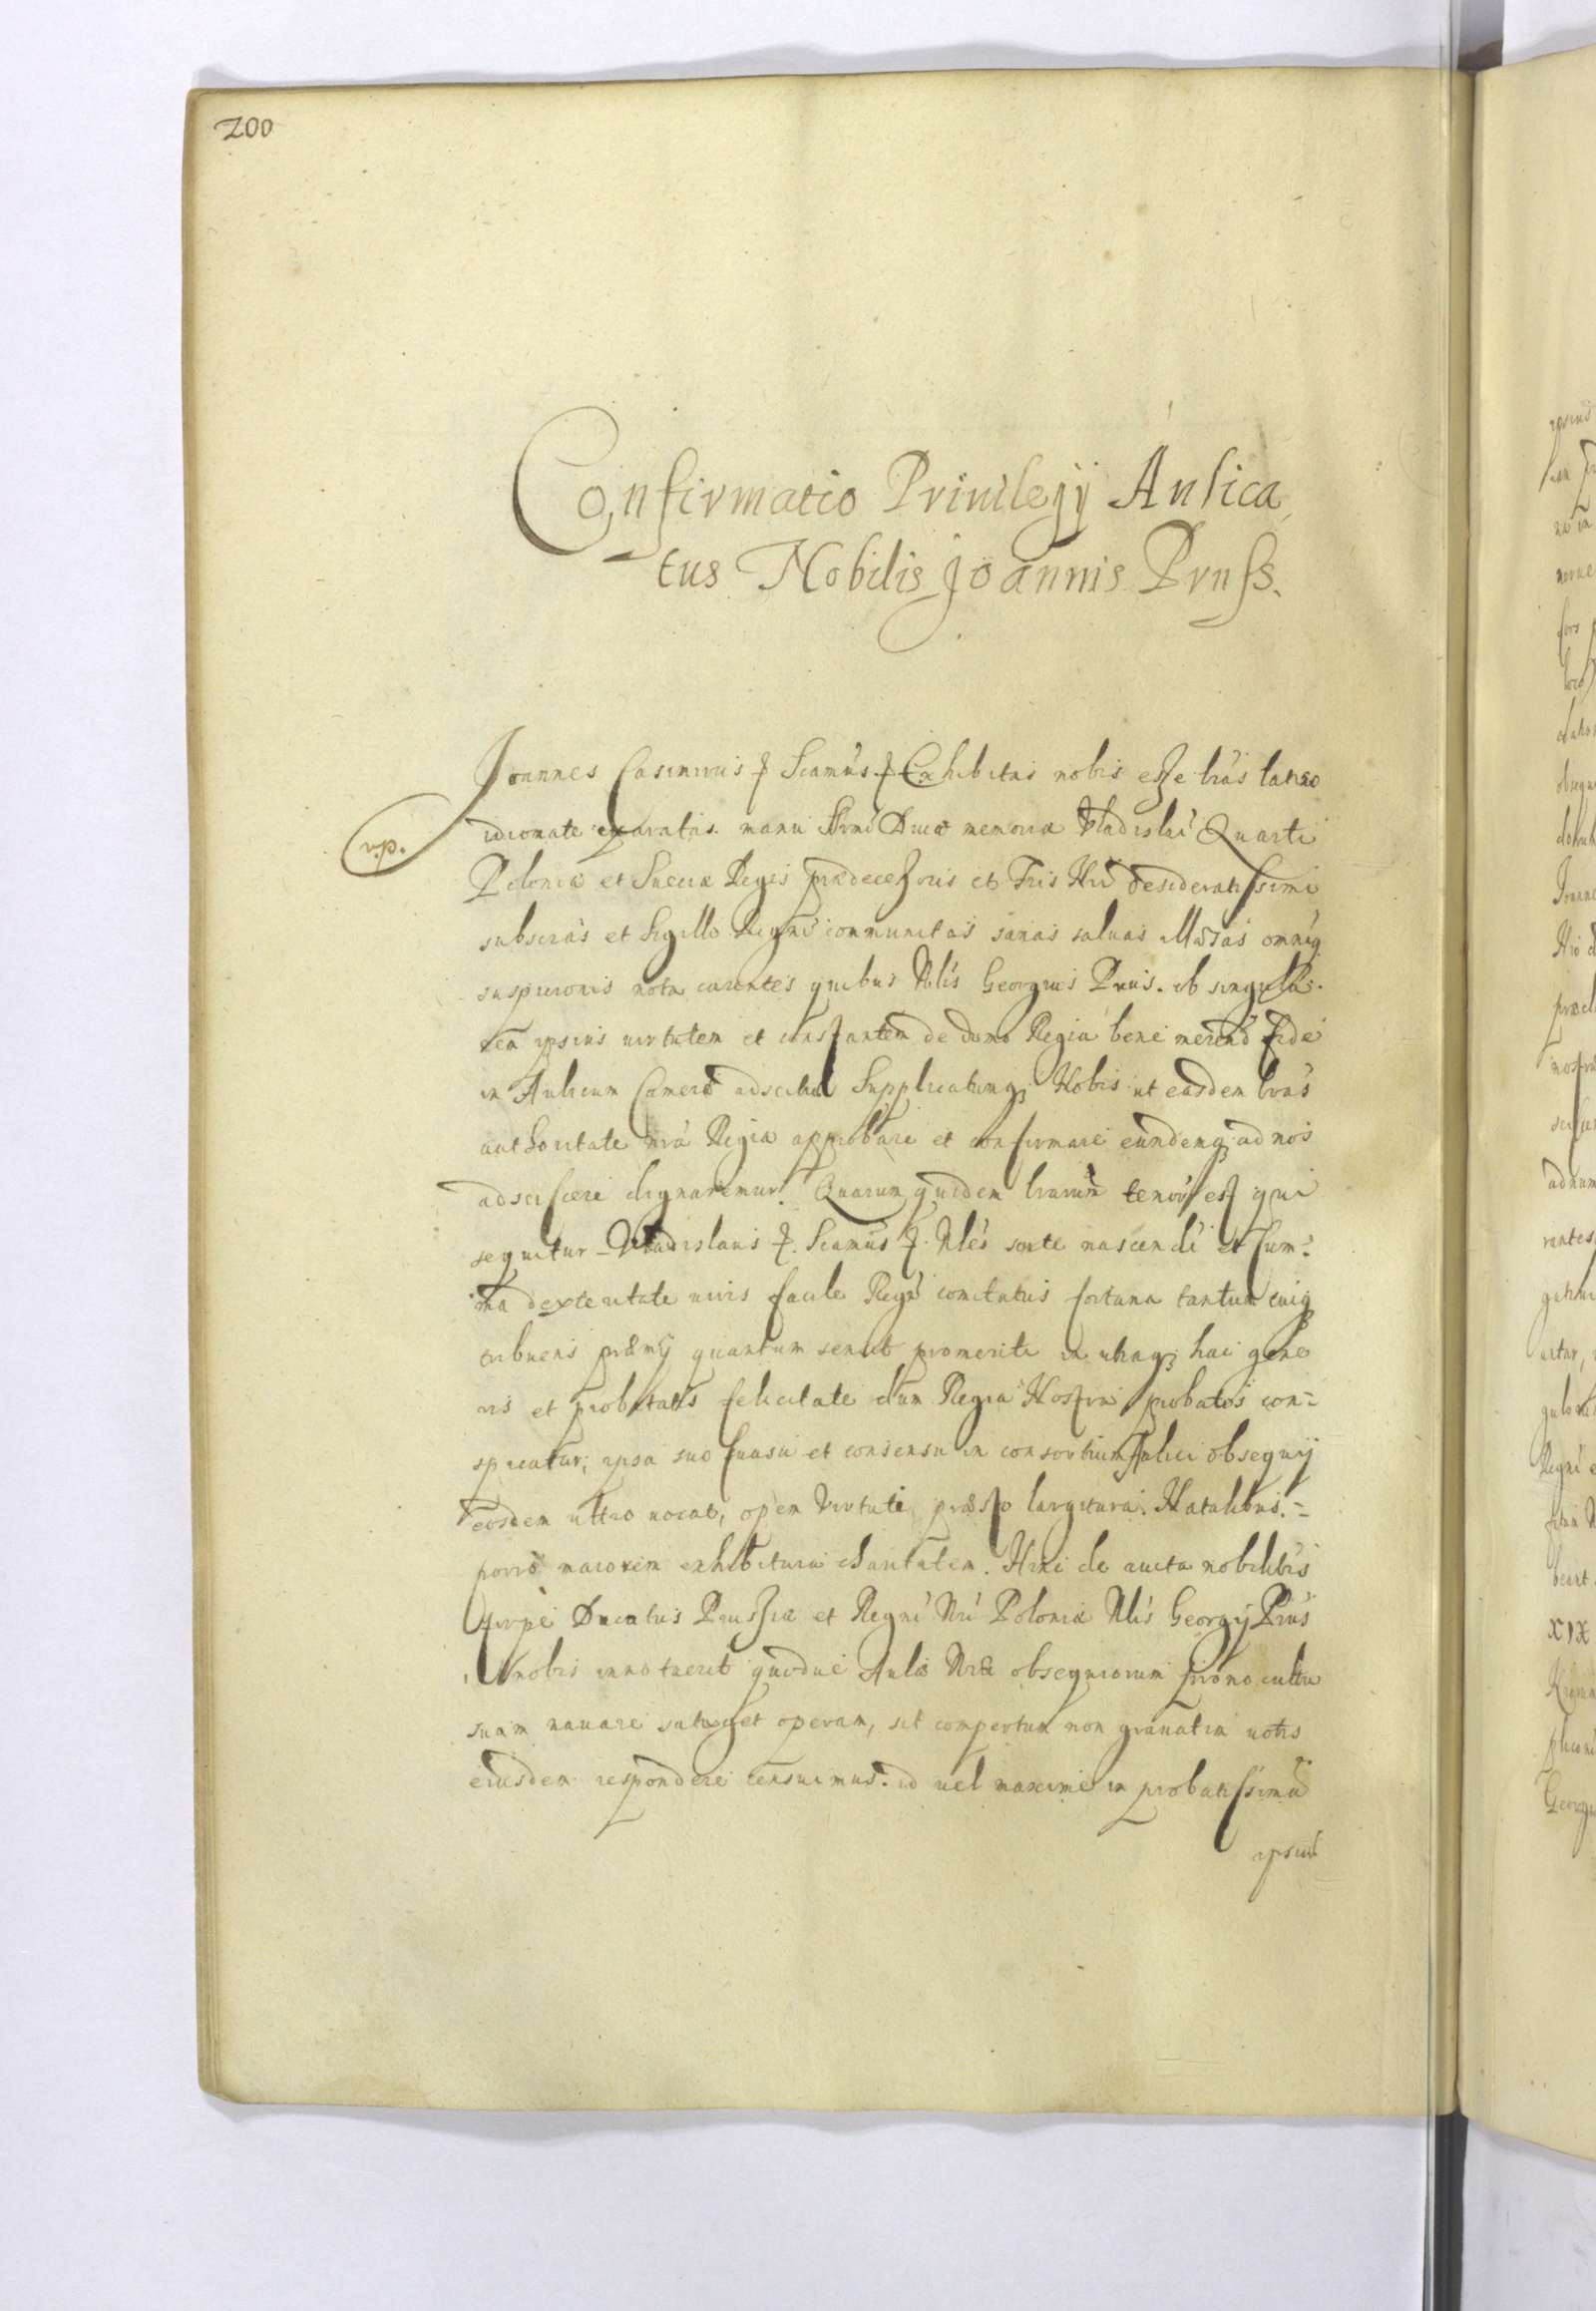 200
Confirmatio Priuilegij Aulica
tus Nobilis Joannis Pruss.
Joannes Casimirus Sicamus Exhibitas nobis esse lras latino
idiomate exaratas manu Srmi Diuæ memoriæ Vladislai Quarti
Poloniæ et Sueciæ Regis prædecessoris et Fris Nri desideratissimi
subscras et Sigillo Regni communitas sanas saluas illæsas omniq
suspicionis nota carentes quibus Nblis Georgius Prus. ob singula-
rem ipsius uirtutem et constantem de domo Regia bene merend fide
in Aulicum Cameræ adscitus Supplicatumq Nobis ut easdem lras
authoritate nra Regia approbare et confirmare eundemq ad nos
adsciscere dignaremur. Quarum quidem lrarum tenor est qui
sequitur Vladislaus Sicamus Nles sorte nascendi et sum-
ma dexteritate uiris facile Regni comitatus fortuna tantum cuiq
tribuens præmij quantum senserit promeriti in utraq hac gene
ris et probitatis felicitate dum Regia Nostra probatos con-
spicatur, ipsa suo suasu et consensu in consortium Aulici obsequij
eosdem ultro uocat, opem Virtuti præsto largitura. Natalibus.
porro maiorem exhibitura claritatem. Hinc de aucta nobilibus
stirpe Ducatus Prussiæ et Regni Nri Poloniæ Nlis Georgij Prus
nobis innotuerit quodue Aulæ Nræ obsequiorum prono cultu
suam nauare satagat operam, sit compertum non grauatim uotis
eiusdem respondere censuimus. id uel maxime in probatissima
ipsius